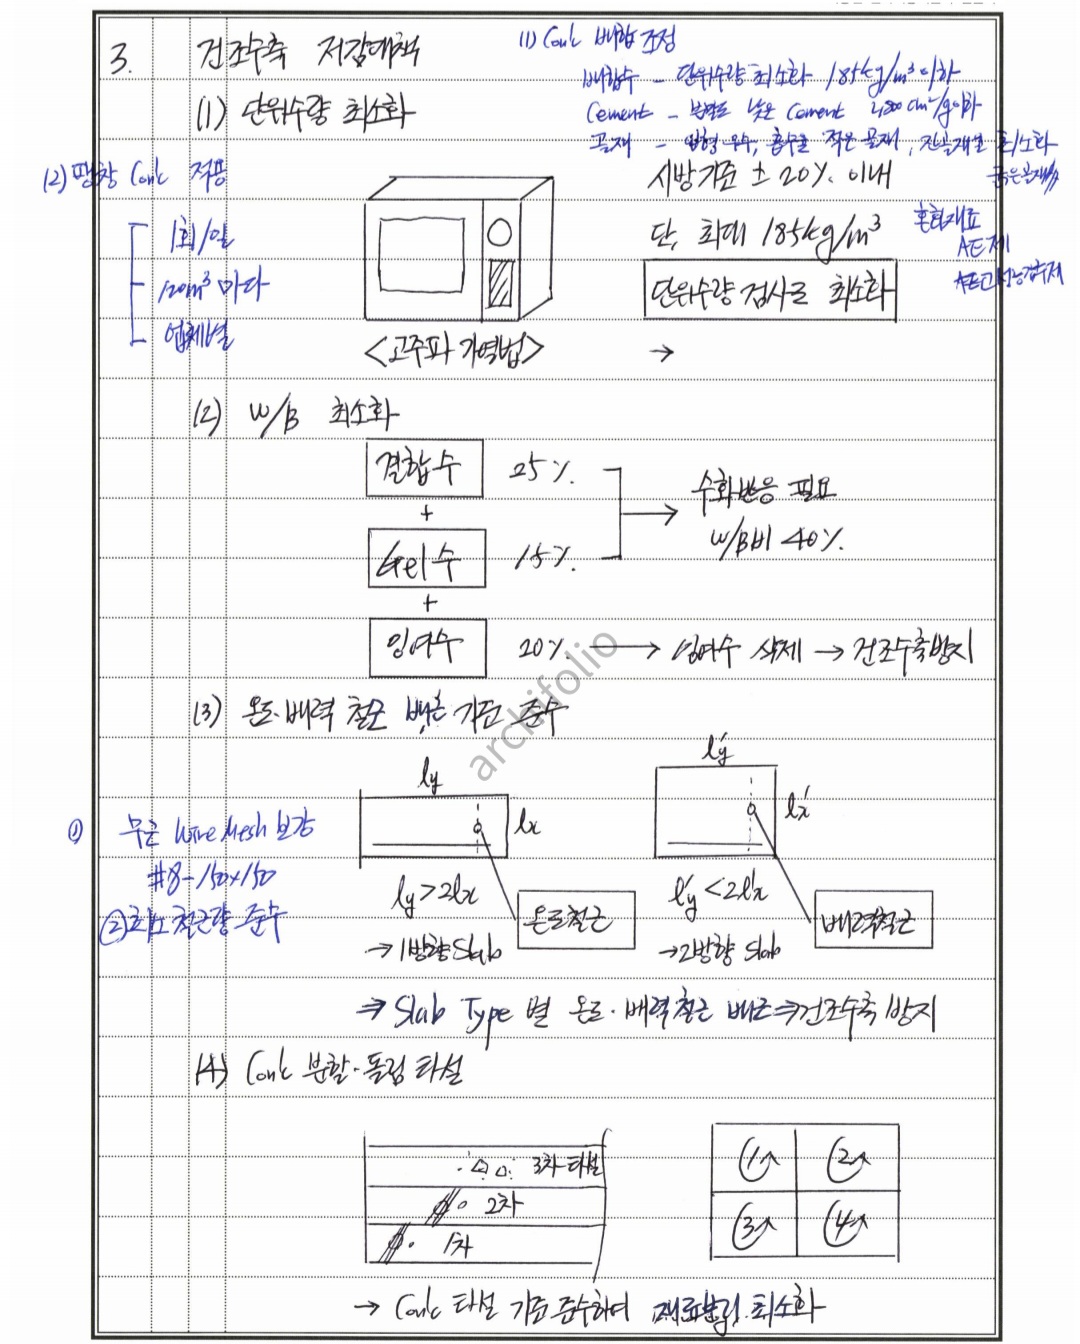 3. 건조수축 저감대책
(1) Con'c 배합 조정
배합수 - 단위수량 최소화 185kg/m³ 이하
(1) 단위수량 최소화
Cement - 분말도 낮은 Cement 2,800 cm²/g이하
골재 - 입형 우수, 흡수율 적은 골재, 잔골재율 최소화
굵은골재
(2) 팽창 Con'c 적용
시방기준 ± 20% 이내
1회/일
단, 최대 185kg/m³
혼화재료
AE제
120m³ 마다
단위수량 검사로 최소화
AE고성능감수제
업체별
<고주파 가열법>
→
(2) W/B 최소화
결합수 25%
+
수화반응 필요
W/B비 40%
Gel수 15%
+
잉여수 20% → 잉여수 삭제 → 건조수축방지
(3) 온도·배력 철근 배근 기준 준수
ly
lx
ly'
lx'
① 무근 Wire Mesh 보강
#8-150×150
② 최소 철근량 준수
ly>2lx
온도철근
→1방향 Slab
ly'<2lx'
배력철근
→2방향 Slab
⇒ Slab Type 별 온도·배력철근 배근⇒건조수축 방지
(4) Con'c 분할·독립 타설
3차 타설
2차
1차
① ②
③ ④
→ Con'c 타설 기준 준수하여 재료분리 최소화
archifolio